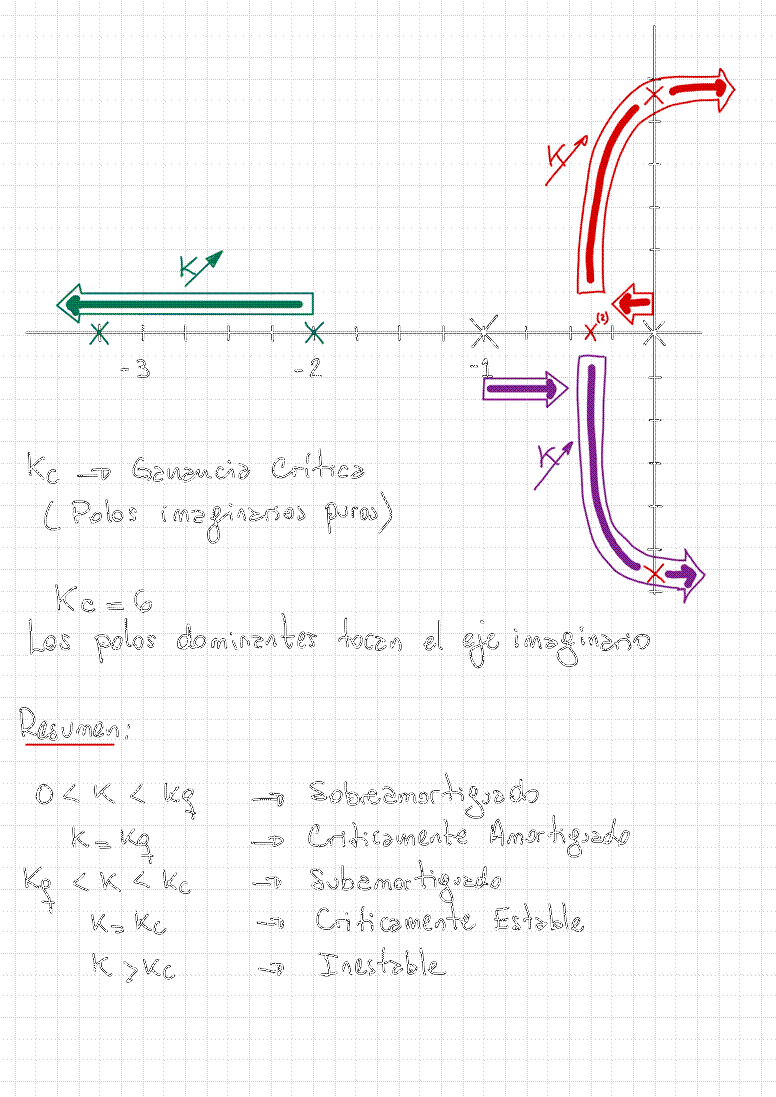 K
K
(2)
-3 -2 -1
K
Kc → Ganancia Crítica
( Polos imaginarios puros)
Kc = 6
Los polos dominantes tocan el eje imaginario
Resumen:
0 < K < Kq → Sobreamortiguado
K = Kq → Criticamente Amortiguado
Kq < K < Kc → Subamortiguado
K = Kc → Criticamente Estable
K > Kc → Inestable